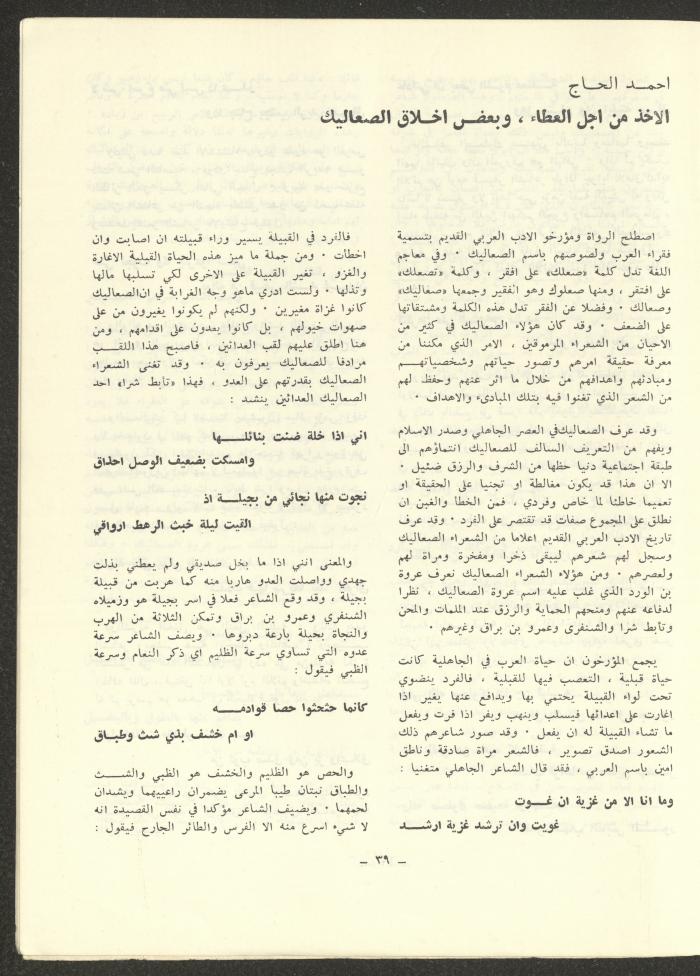 احمــد الحـاج
الاخذ من اجل العطاء ، وبعض اخلاق الصعاليك
اصطلح الرواة ومؤرخو الادب العربي القديم بتسمية
فقراء العرب ولصوصهم باسم الصعاليك ٠ وفي معاجم
اللغة تدل كلمة «صعلك» على افقر ، وكلمة «تصعلك»
على افتقر ، ومنها صعلوك وهو الفقير وجمعها «صعاليك»
وصعالك ٠ وفضلا عن الفقر تدل هذه الكلمة ومشتقاتها
على الضعف ٠ وقد كان هؤلاء الصعاليك في كثير من
الاحيان من الشعراء المرموقين ، الامر الذي مكننا من
معرفة حقيقة امرهم وتصور حياتهم وشخصياتهــم
ومبادئهم واهدافهم من خلال ما اثر عنهم وحفظ لهم
من الشعر الذي تغنوا فيه بتلك المبادىء والاهداف ٠
وقد عرف الصعاليك في العصر الجاهلي وصدر الاسلام
ويفهم من التعريف السالف للصعاليك انتماؤهم الى
طبقة اجتماعية دنيا حظها من الشرف والرزق ضئيل ٠
الا ان هذا قد يكون مغالطة او تجنيا على الحقيقة او
تعميما خاطئا لما خاص وفردي ، فمن الخطا والغبن ان
نطلق على المجموع صفات قد تقتصر على الفرد ٠ وقد عرف
تاريخ الادب العربي القديم اعلاما من الشعراء الصعاليك
وسجل لهم شعرهم ليبقى ذخرا ومفخرة ومراة لهم
ولعصرهم ٠ ومن هؤلاء الشعراء الصعاليك نعرف عروة
بن الورد الذي غلب عليه اسم عروة الصعاليك ، نظرا
لدفاعه عنهم ومنحهم الحماية والرزق عند الملمات والمحن
وتابط شرا والشنفرى وعمرو بن براق وغيرهم ٠
يجمع المؤرخون ان حياة العرب في الجاهلية كانت
حياة قبلية ، التعصب فيها للقبلية ، فالفرد ينضوي
تحت لواء القبيلة يحتمي بها ويدافع عنها يغير اذا
اغارت على اعدائها فيسلب وينهب ويفر اذا فرت ويفعل
ما تشاء القبيلة له ان يفعل ٠ وقد صور شاعرهم ذلك
الشعور اصدق تصوير ، فالشعر مراة صادقة وناطق
امين باسم العربي ، فقد قال الشاعر الجاهلي متغنيا :
وما انا الا من غزية ان غــوت
غويت وان ترشد غزية ارشــد
فالفرد في القبيلة يسير وراء قبيلته ان اصابت وان
اخطات ٠ ومن جملة ما ميز هذه الحياة القبلية الاغارة
والغزو ، تغير القبيلة على الاخرى لكي تسلبها مالها
وتذلها ٠ ولست ادري ماهو وجه الغرابة في ان الصعاليك
كانوا غزاة مغيرين ٠ ولكنهم لم يكونوا يغيرون من على
صهوات خيولهم ، بل كانوا يعدون على اقدامهم ، ومن
هنا اطلق عليهم لقب العدائين ، فاصبح هذا اللقــب
مرادفا للصعاليك يعرفون به ٠ وقد تغنى الشعراء
الصعاليك بقدرتهم على العدو ، فهذا «تابط شرا» احد
الصعاليك العدائين ينشد :
اني اذا خلة ضنت بنائلــها
وامسكت بضعيف الوصل احذاق
نجوت منها نجائي من بجيلــة اذ
القيت ليلة خبث الرهط ارواقي
والمعنى انني اذا ما بخل صديقي ولم يعطني بذلت
جهدي وواصلت العدو هاربا منه كما هربت من قبيلة
بجيلة ، وقد وقع الشاعر فعلا في اسر بجيلة هو وزميلاه
الشنفري وعمرو بن براق وتمكن الثلاثة من الهرب
والنجاة بحيلة بارعة دبروها ٠ ويصف الشاعر سرعة
عدوه التي تساوي سرعة الظليم اي ذكر النعام وسرعة
الظبي فيقول :
كانما حثحثوا حصا قوادمــه
او ام خشف بذي شث وطبـاق
والحص هو الظليم والخشف هو الظبي والشــث
والطباق نبتان طيبا المرعى يضمران راعييهما ويشدان
لحمهما ٠ ويضيف الشاعر مؤكدا في نفس القصيدة انه
لا شيء اسرع منه الا الفرس والطائر الجارح فيقول :
– ٣٩ –